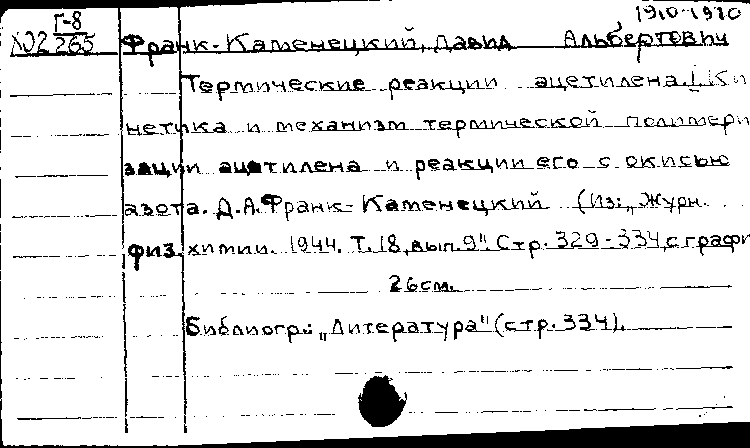 Г-8 1910-1970
265 Франк-Каменецкий, Давид Альбертович
Термические реакции ацетилена. I. Ки
нетика и механизм термической полимери
зации ацетилена и реакции его с окисью
азота. Д.А. Франк-Каменецкий (Из: „Журн.
физ. химии. 1944. Т. 18, вып. 9". Стр. 329-334, с графи
26см.
Библиогр.: „Литература" (стр. 334).